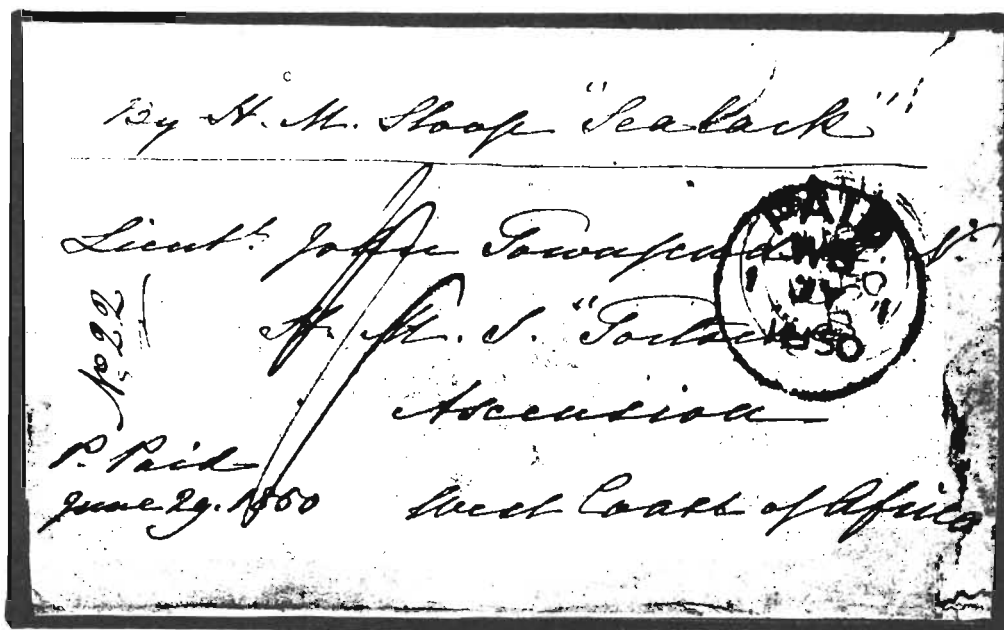 By H. M. Sloop "Sealark"
Lieut. John Townsend
H. M. S. "
Ascension
West Coast of Africa
No 22
P. Paid
June 29. 1850
PAID